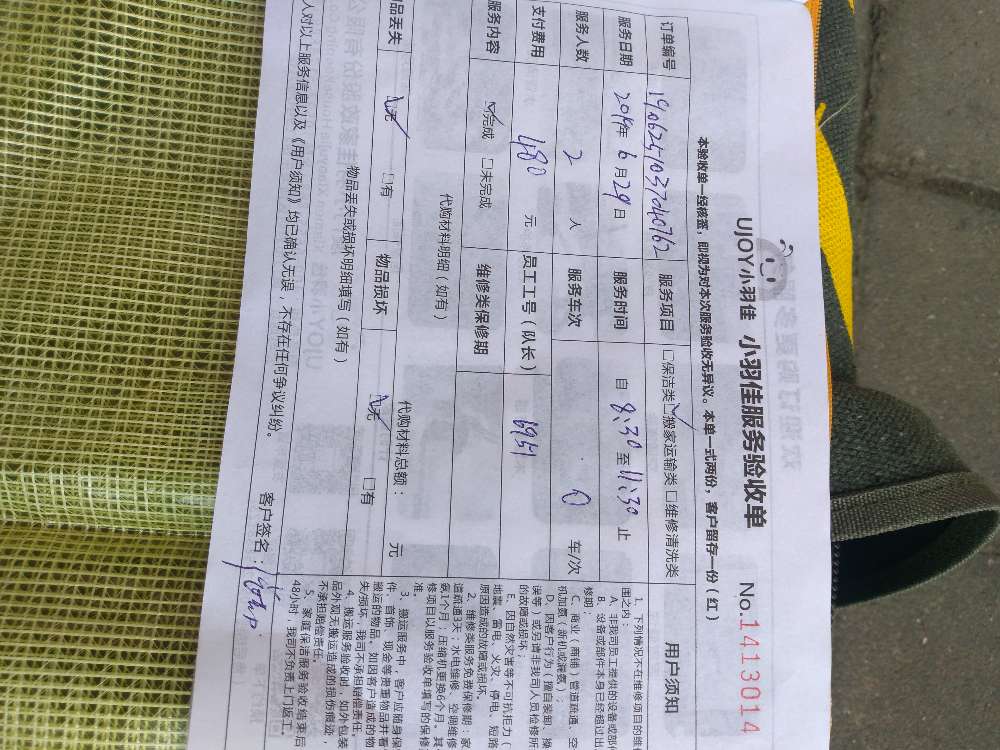 UJOY小羽佳 小羽佳服务验收单 No.1413014
本验收单一经核签，即视为对本次服务验收无异议。本单一式两份，客户留存一份（红）
订单编号 1906251037040762 服务项目 □保洁类☑搬家运输类 □维修清洗类
服务日期 2019年 6月29日 服务时间 自 8:30 至 11:30 止
服务人数 2 人 服务车次 0 车/次
支付费用 480 元 员工工号（队长） 6951
服务内容 ☑完成 □未完成 维修类保修期
代购材料明细（如有） 代购材料总额： 元
物品丢失 ☑无 □有 物品损坏 ☑无 □有
物品丢失或损坏明细填写（如有）
人对以上服务信息以及《用户须知》均已确认无误，不存在任何争议纠纷。
客户签名：
用户须知
1、下列情况不在维修项目的维
围之内：
A、非我司员工提供的设备或部件
B、设备或部件本身已经超过出
修期；
C、商业（商铺）管道疏通、空
机加氨（新机或深氨）；
D、因客户行为（擅自装卸、操
误等）或另请非我司人员检修所
的故障或损坏；
E、因自然灾害等不可抗拒力（
地震、雷电、火灾、停电、短路
原因造成的故障或损坏。
2、维修类服务免费保修期：家
道疏通3天；水电维修、空调维修
氟1个月；压缩机更换6个月。其
修项目以服务验收单填写的保修
准。
3、搬运服务中，客户应随身保
件、首饰、现金等贵重物品并看
搬运的物品。如因客户造成的物
失/损坏，我司不承担赔偿责任。
4、搬运服务验收时，如外包装
品外观无搬运造成的损伤痕迹，
不承担赔偿责任。
5、家庭保洁服务验收结束后
48小时，我司不负责上门返工。